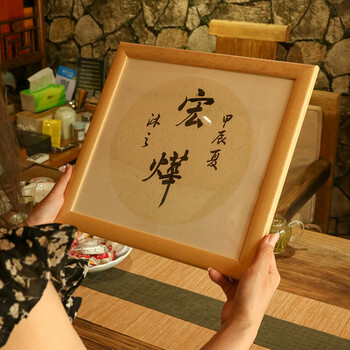 甲辰夏
宏烨
沐之